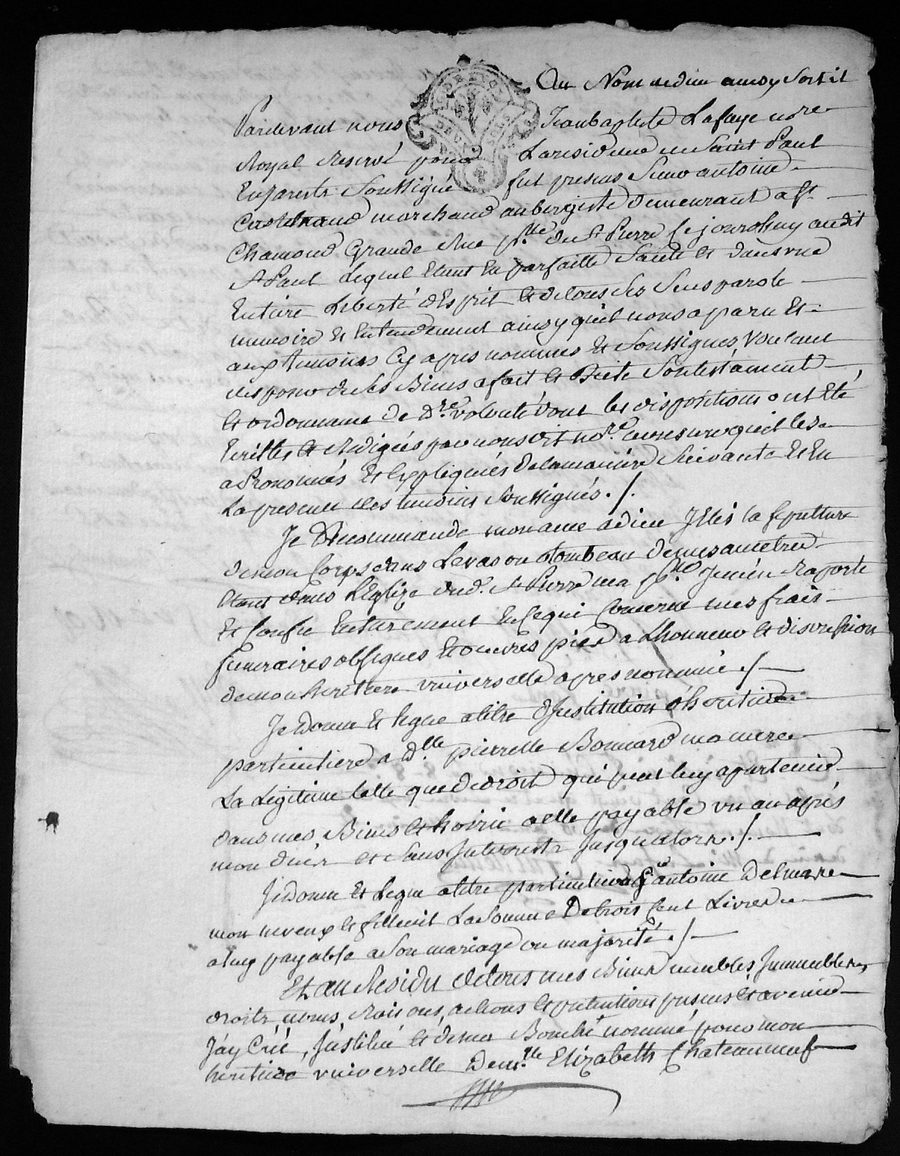 Au Nom de dieu ainsy Soit il
Pardevant nous Jean baptiste Lafaye nore
Royal Reservé pour La residence de Saint Paul
En Jarests Soussigné fut presens Sieur antoine
marchand aubergiste demeurant a St
Chamond Grande Rue psse de St Pierre Ce jourdhuy audit
St Paul Lequel Etant En parfaitte Santé et dans une
Entiere Liberté d'Esprit et de tous ses Sens parole
memoire et Entendement ainsy qu'il nous a paru Et
aux temoins Cy apres nommés Et Soussignés Voulant
disposer de Ses Biens a fait et Son testament
et ordonnance de dre volonté dont les dispositions ont Eté
Ecrittes et Redigées par nous dit nore a mesure quil les a
a Prononcés Et Expliquées de la maniere Suivante Et En
La presence des temoins Soussignés ./.
Je Recommande mon ame a dieu J'Elis la Sepulture
de mon Corps dans Le vas ou tombeau de mes ancetres
Etant dans L'Eglise dud. St Pierre ma psse Je m'en Raporte
Et Confie Entierement En Ce qui Concerne mes frais
funeraires obseques Et oeuvres pies a L'honneur et discression
de mon heritiere universelle apres nommée ./.
Je donne Et legue a titre d'Institution d'heritiere
particuliere a dlle pierrette Bonnard ma mere
La Legitime telle que de droit qui peut luy apartenir
dans mes Biens et hoirie a elle payable un an après
mon decés et Sans Interests Jusqu'alors ./.
Je donne Et Legue a titre particulier a Sr antoine Delmare
mon neveux et filleul La Somme De trois Cent Livres
a luy payable a Son mariage ou majorité ./.
Et au Residu de tous mes Biens meubles Immeubles
droits noms Raisons actions et pretentions presens et avenir
J'ay Créé, Institué et de ma Bouche nommé pour mon
heritiere universelle Demlle Elizabeth Chateauneuf